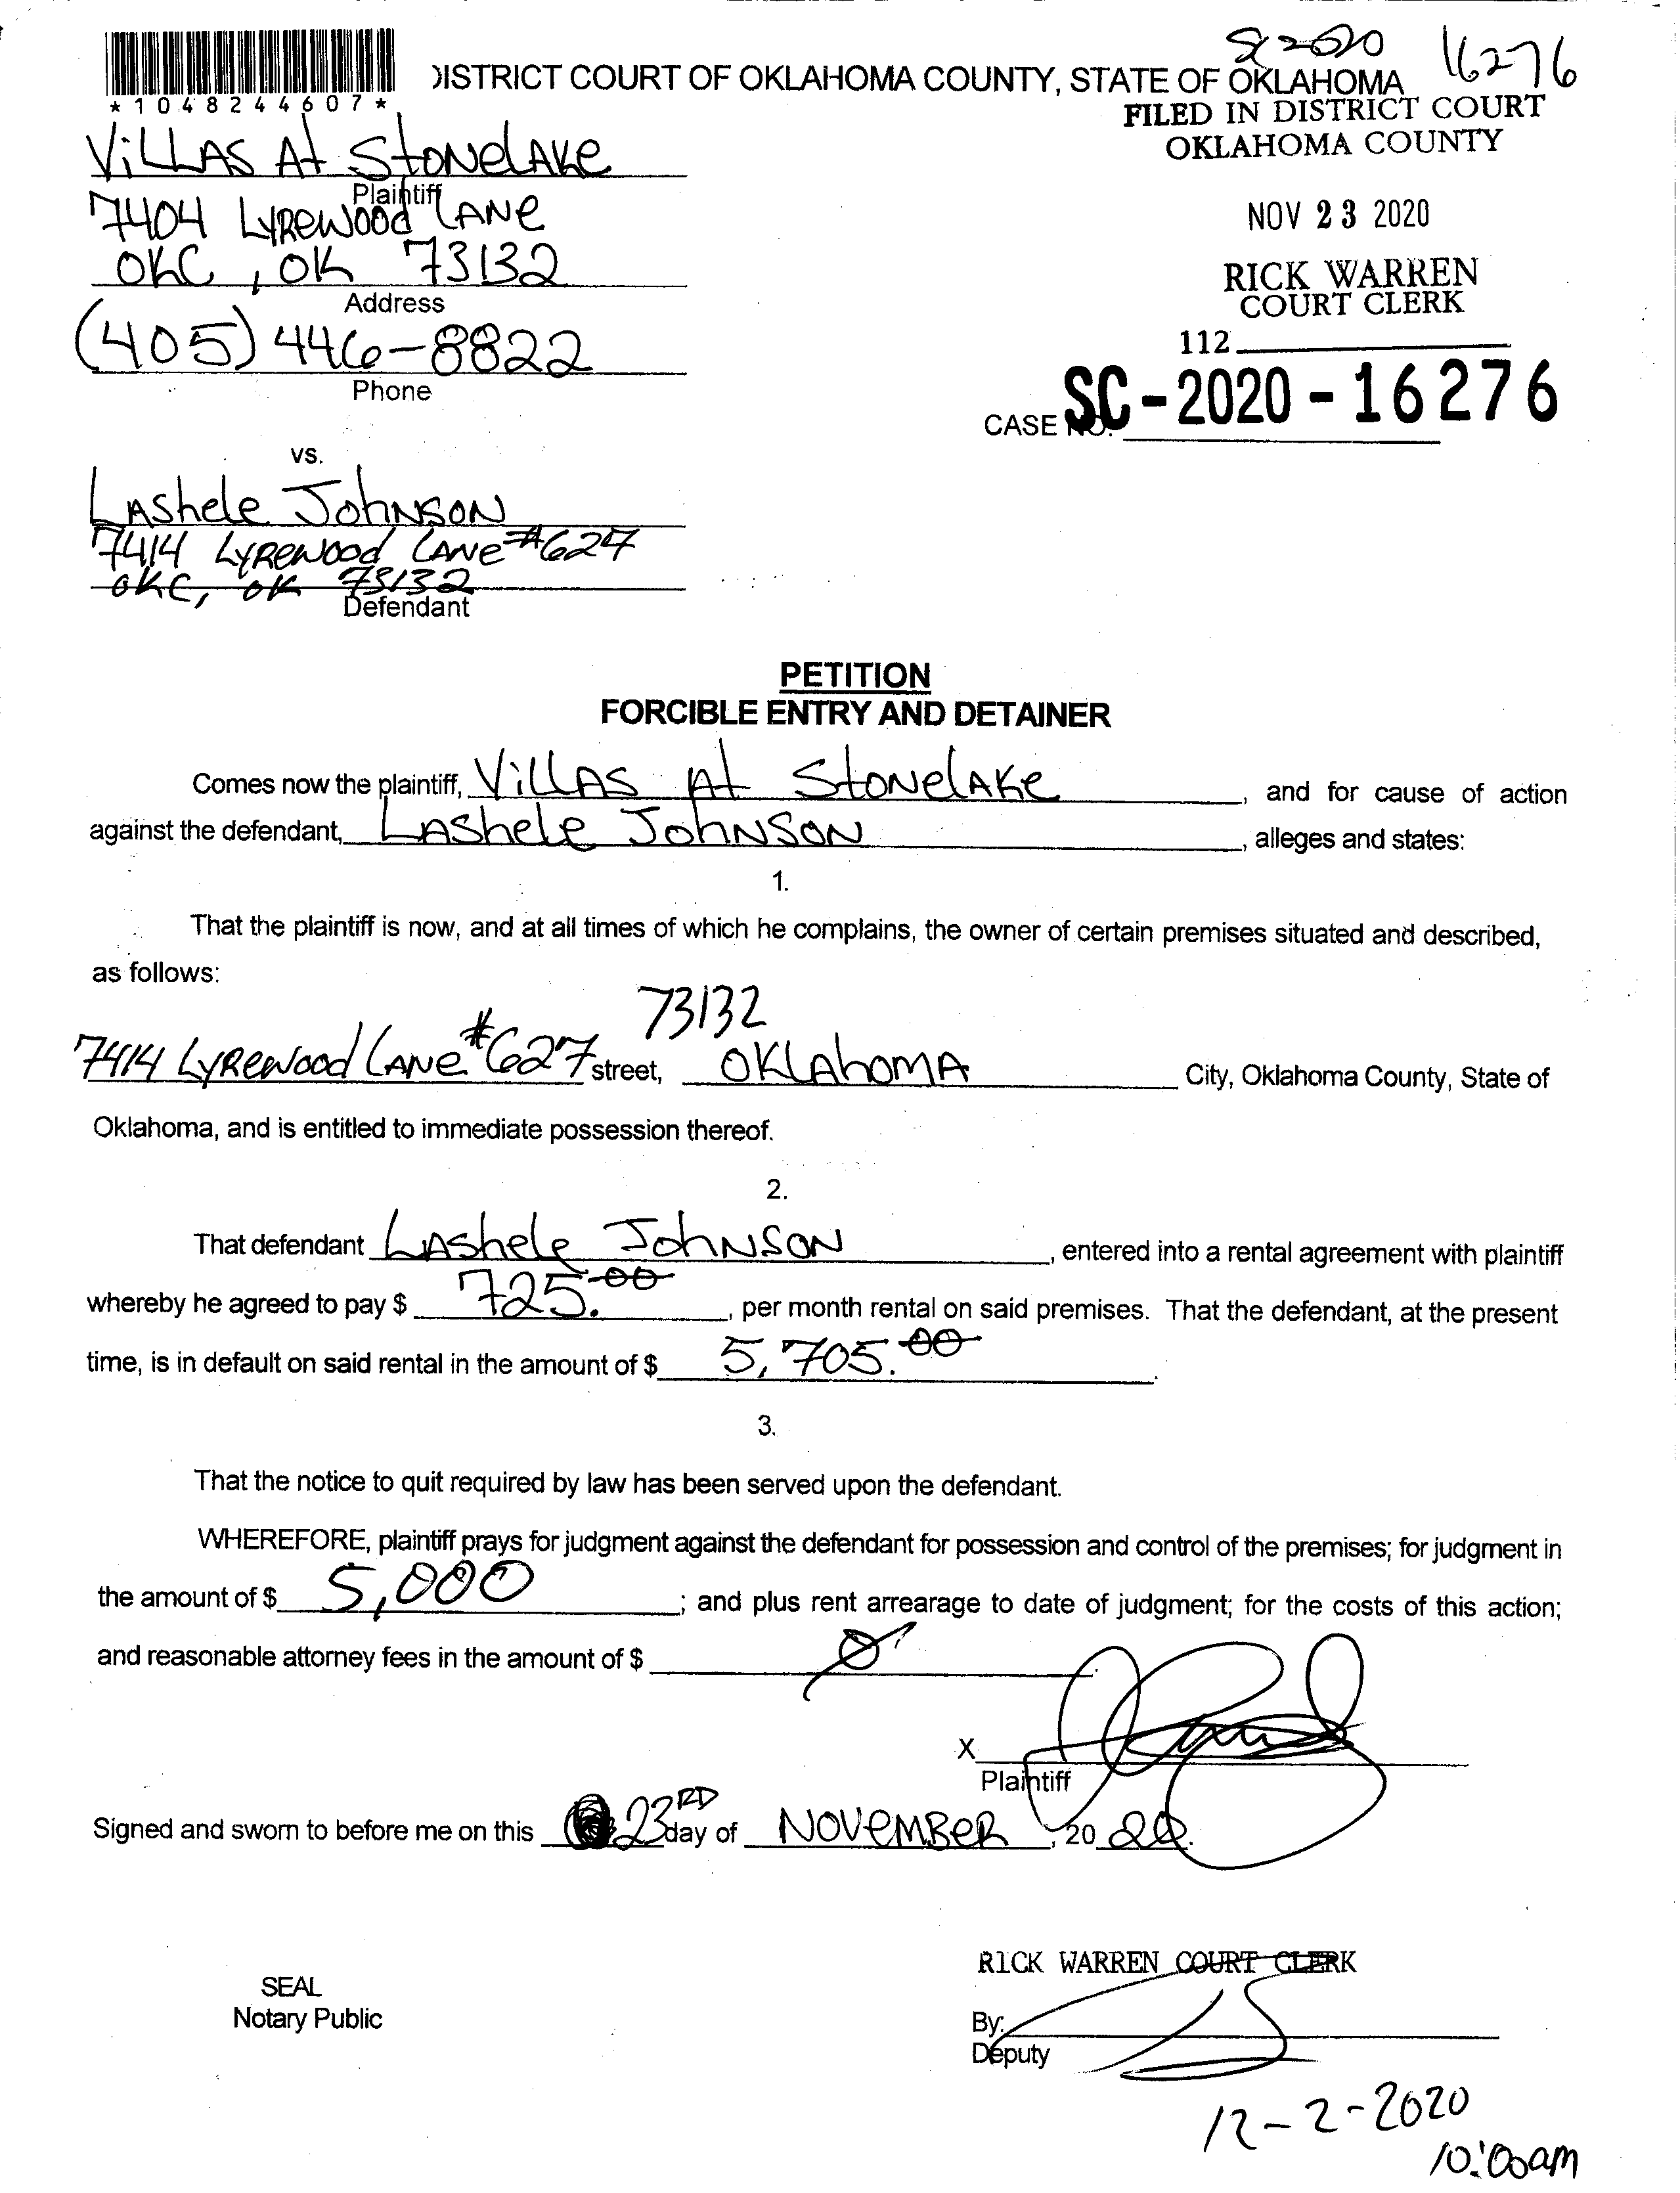 SC 2020 16276
)ISTRICT COURT OF OKLAHOMA COUNTY, STATE OF OKLAHOMA
*1048244607*
FILED IN DISTRICT COURT
OKLAHOMA COUNTY
NOV 23 2020
RICK WARREN
COURT CLERK
112
CASE NO. SC-2020-16276
ViLLAS At StoNelAke
Plaintiff
7404 LyRewood LANe
OKC, OK 73132
Address
(405) 446-8822
Phone
vs.
LAShele JohNSON
7414 LyRewood LANe #627
OKC, OK 73132
Defendant
PETITION
FORCIBLE ENTRY AND DETAINER
Comes now the plaintiff, ViLLAS At StoNelAke, and for cause of action
against the defendant, LAShele JohNSON, alleges and states:
1.
That the plaintiff is now, and at all times of which he complains, the owner of certain premises situated and described,
as follows:
73132
7414 LyRewood LANe #627 street, OKLAhoMA City, Oklahoma County, State of
Oklahoma, and is entitled to immediate possession thereof.
2.
That defendant LAShele JohNSON, entered into a rental agreement with plaintiff
whereby he agreed to pay $ 725.00, per month rental on said premises. That the defendant, at the present
time, is in default on said rental in the amount of $ 5,705.00.
3.
That the notice to quit required by law has been served upon the defendant.
WHEREFORE, plaintiff prays for judgment against the defendant for possession and control of the premises; for judgment in
the amount of $ 5,000; and plus rent arrearage to date of judgment; for the costs of this action;
and reasonable attorney fees in the amount of $ Ø.
X
Plaintiff
Signed and sworn to before me on this 23RD day of NOVeMBeR, 20 20.
SEAL
Notary Public
RICK WARREN COURT CLERK
By:
Deputy
12-2-2020
10:00am